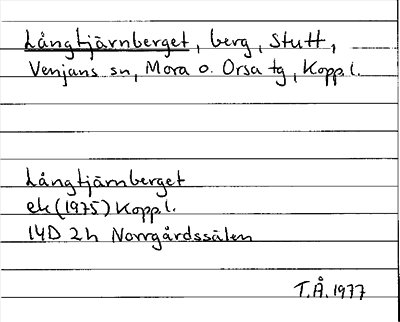 Långtjärnberget, berg, Stutt,
Venjans sn, Mora o. Orsa tg, Kopp.l.
Långtjärnberget
ek (1975) Kopp.l.
14D 2h Norrgårdssälen
T.Å. 1977